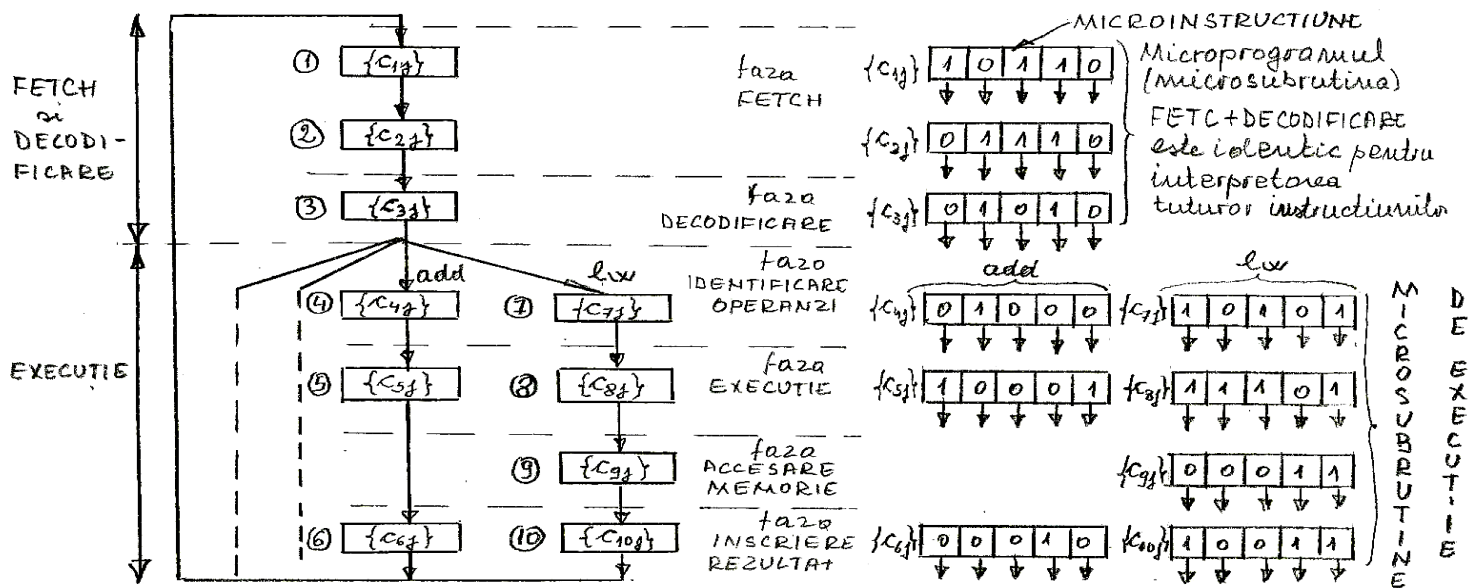 FETCH
si
DECODI-
FICARE
EXECUTIE
① {C1j}
② {C2j}
③ {C3j}
add
lw
④ {C4j}
⑦ {C7j}
⑤ {C5j}
⑧ {C8j}
⑨ {C9j}
⑥ {C6j}
⑩ {C10j}
faza
FETCH
faza
DECODIFICARE
faza
IDENTIFICARE
OPERANZI
faza
EXECUTIE
faza
ACCESARE
MEMORIE
faza
INSCRIERE
REZULTAT
MICROINSTRUCTIUNE
{C1j} 1 0 1 1 0
{C2j} 0 1 1 1 0
{C3j} 0 1 0 1 0
Microprogramul
(microsubrutina)
FETC+DECODIFICARE
este identic pentru
interpretarea
tuturor instructiunilor
add
lw
{C4j} 0 1 0 0 0
{C7j} 1 0 1 0 1
{C5j} 1 0 0 0 1
{C8j} 1 1 1 0 1
{C9j} 0 0 0 1 1
{C6j} 0 0 0 1 0
{C10j} 1 0 0 1 1
MICROSUBRUTINE
DE EXECUTIE